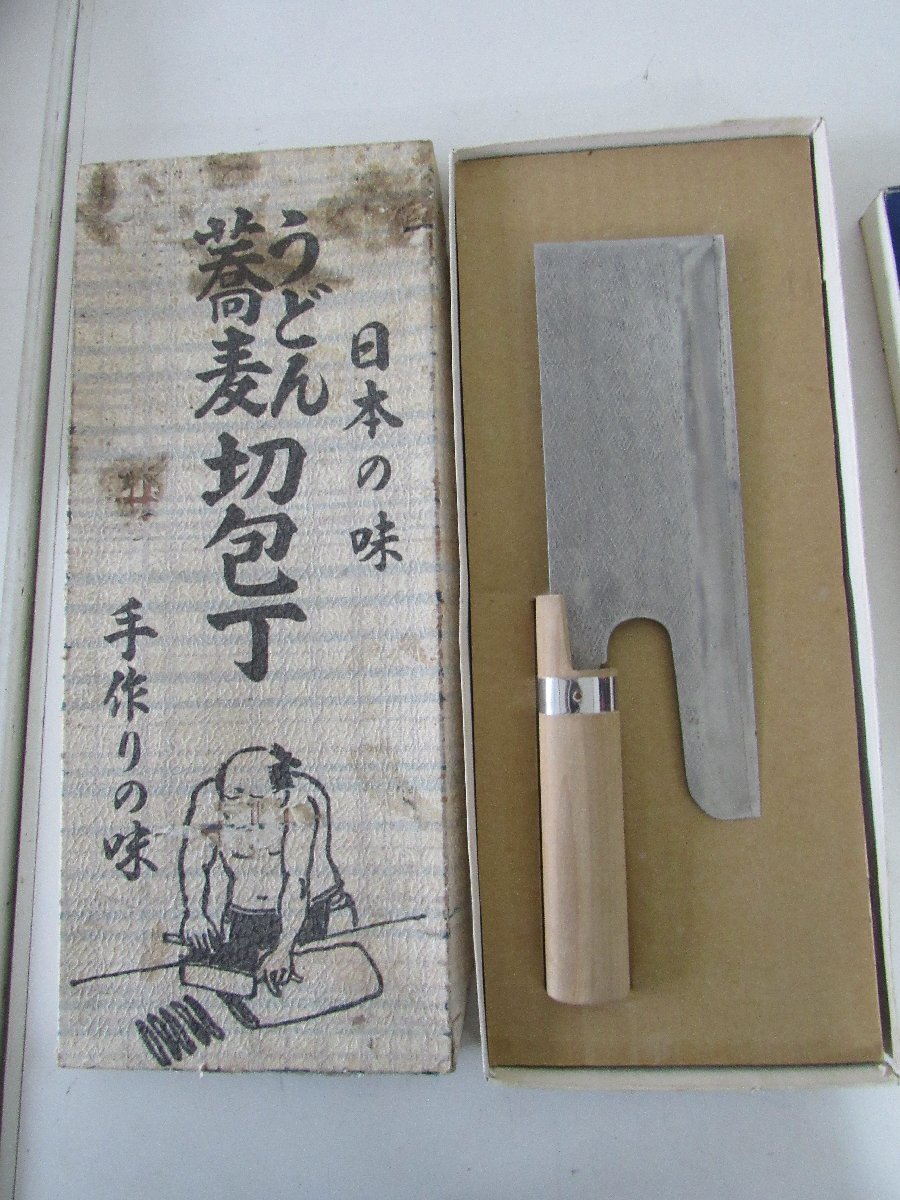 日本の味
うどん
蕎麦
切包丁
手作りの味